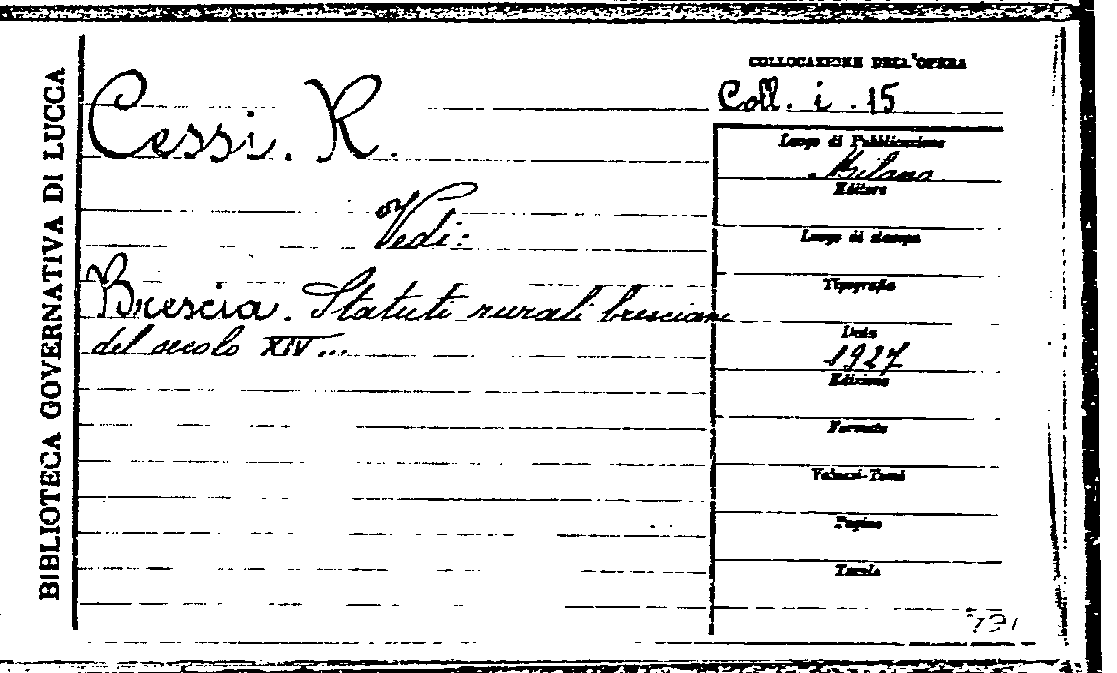 BIBLIOTECA GOVERNATIVA DI LUCCA
Cessi. R.
Vedi:
Brescia. Statuti rurali bresciani
del secolo XIV...
COLLOCAZIONE DELL'OPERA
Coll. i. 15
Luogo di Pubblicazione
Milano
Editore
Luogo di stampa
Tipografia
Data
1927
Edizione
Formato
Volumi-Tomi
Pagine
Tavole